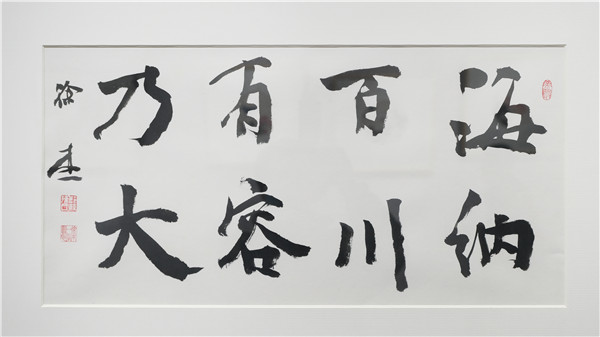 海纳
百川
有容
乃大
徐杰